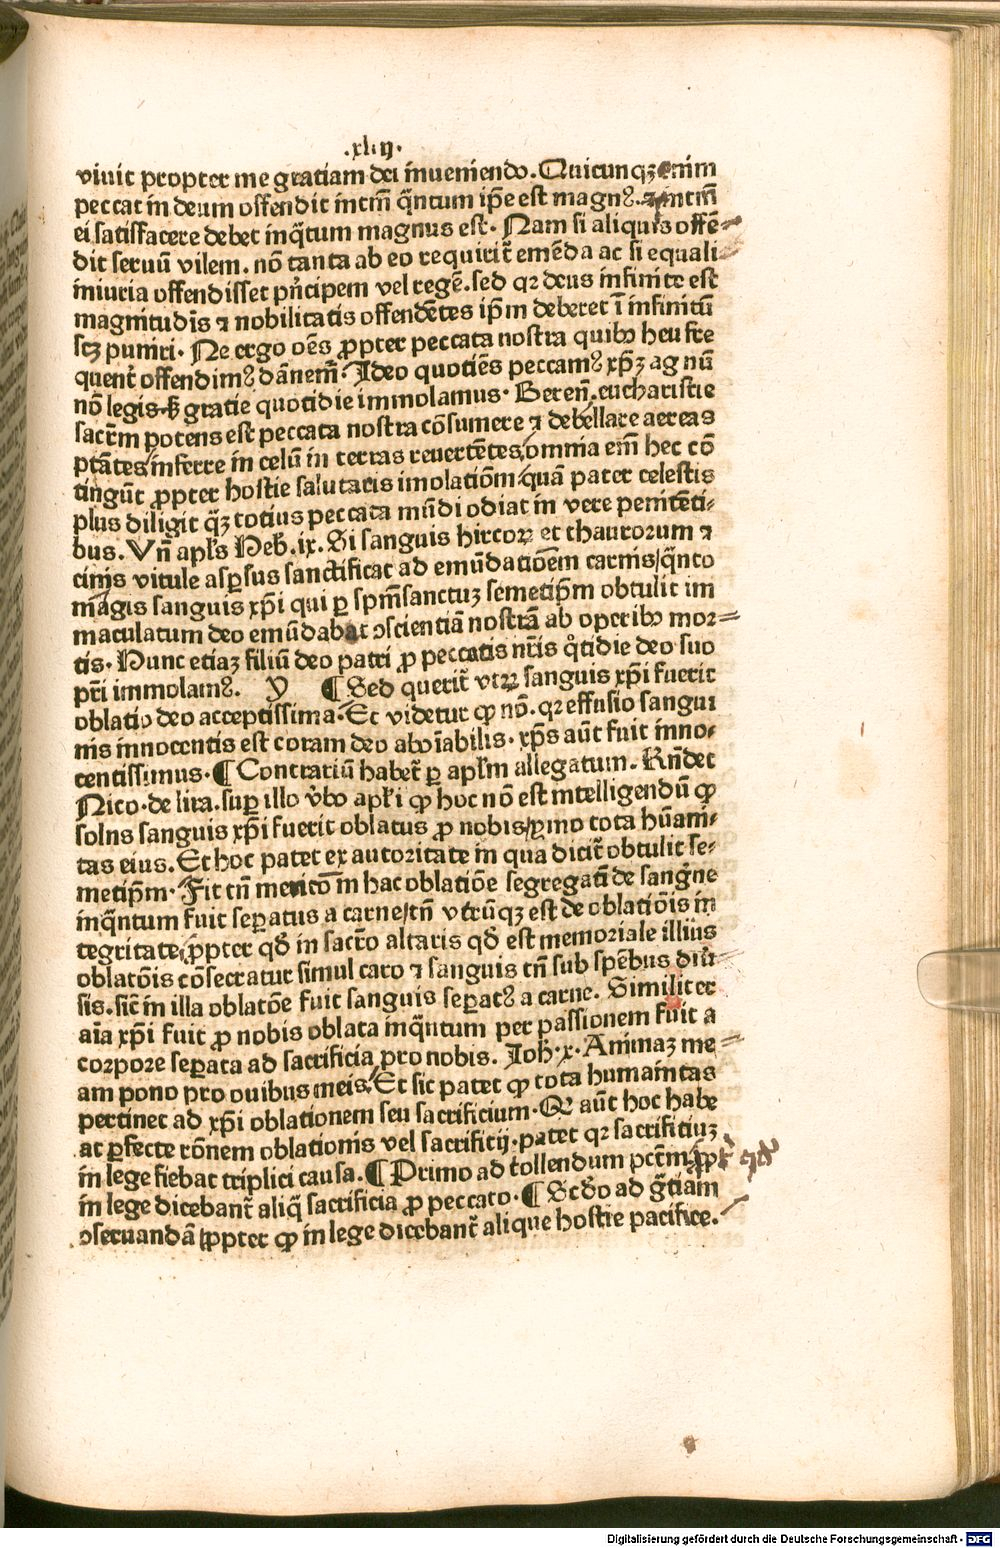 .xliij.
viuit propter me gratiam dei inueniendo. Quicunqꝫ enim
peccat in deum offendit intm̄ q̄ntum ip̄e est magnꝰ. ⁊ intm̄
ei satisfacere debet inq̄tum magnus est. Nam si aliquis offē⸗
dit seruū vilem. nō tanta ab eo requirit̄ emēda ac si equali⸗
iniuria offendisset pn̄cipem vel regē. sed qꝛ deus infinite est
magnitudīs ⁊ nobilitatis offendētes ip̄m deberet ī infinitū
scꝫ puniri. Ne ergo oēs ꝓpter peccata nostra quibꝰ heu fre
quent̄ offendimꝰ dānem̄. Ideo quotiēs peccamꝰ xp̄ꝫ agnū
nō legis ꝫ gratie quotidie immolamus. Beren̄. eucharistie
sacr̄m potens est peccata nostra cōsumere ⁊ debellare aereas
ptātes inferre in celū in terras reuertētes, omnia em̄ hec cō
tingūt ꝓpter hostie salutaris imolatiōm quā pater celestis
plus diligit q̄ꝫ totius peccata mūdi odiat in vere penitēti⸗
bus. Vn̄ apl̄s Heb. ix. Si sanguis hircoꝝ et thaurorum ⁊
cinis vitule asꝑsus sanctificat ad emūdatiōem carnis/q̄nto
magis sanguis xp̄i qui ꝑ spm̄sanctuꝫ semetip̄m obtulit im
maculatum deo emūdabat ꝯscientiā nostrā ab operibꝰ mor⸗
tis. Hunc etiaꝫ filiū deo patri ꝓ peccatis nr̄is q̊tidie deo suo
pr̄i immolamꝰ. Y ¶ Sed querit̄ vtꝝ sanguis xp̄i fuerit
oblatio deo acceptissima. Et videtur ꝙ nō. qꝛ effusio sangui
nis innocentis est coram deo aboīabilis. xp̄s aūt fuit inno⸗
centissimus. ¶ Contrariū habet̄ ꝑ apl̄m allegatum. Rn̄det
Nico. de lira. suꝑ illo v̄bo apl̄i ꝙ hoc nō est intelligendū ꝙ
solns sanguis xp̄i fuerit oblatus ꝓ nobis/ymo tota hūani⸗
tas eius. Et hoc patet ex autoritate in qua dicit̄ obtulit se⸗
metip̄m. Fit tn̄ mentō in hac oblatiōe segregatī de sangne
inq̄ntum fuit seꝑatus a carne/tn̄ vtrūqꝫ est de oblatiōis in
tegritate, ꝓpter qd̄ in sacr̄o altaris qd̄ est memoriale illius
oblatōis cōsecratur simul caro ⁊ sanguis tn̄ sub spēbus diu̾
sis. sic̄ in illa oblatōe fuit sanguis seꝑatꝰ a carne. Similiter
aīa xp̄i fuit ꝓ nobis oblata inq̄ntum per passionem fuit a
corpore seꝑata ad sacrificia pro nobis. Joh̄. x. Animaꝫ me⸗
am pono pro ouibus meis. Et sic patet ꝙ tota humanitas
pertinet ad xp̄i oblationem seu sacrificium. Qꝛ aūt hoc habe
at ꝑfecte rōnem oblationis vel sacrificij. patet qꝛ sacrificiuꝫ
in lege fiebat triplici causa. ¶ Primo ad tollendum pctm̄ ꝓp̄t
in lege dicebant̄ aliq̄ sacrificia ꝓ peccato. ¶ Scd̄o ad gr̄tiam
ꝯseruandā ꝓpter ꝙ in lege dicebant̄ alique hostie pacifice.
Digitalisierung gefördert durch die Deutsche Forschungsgemeinschaft - DFG